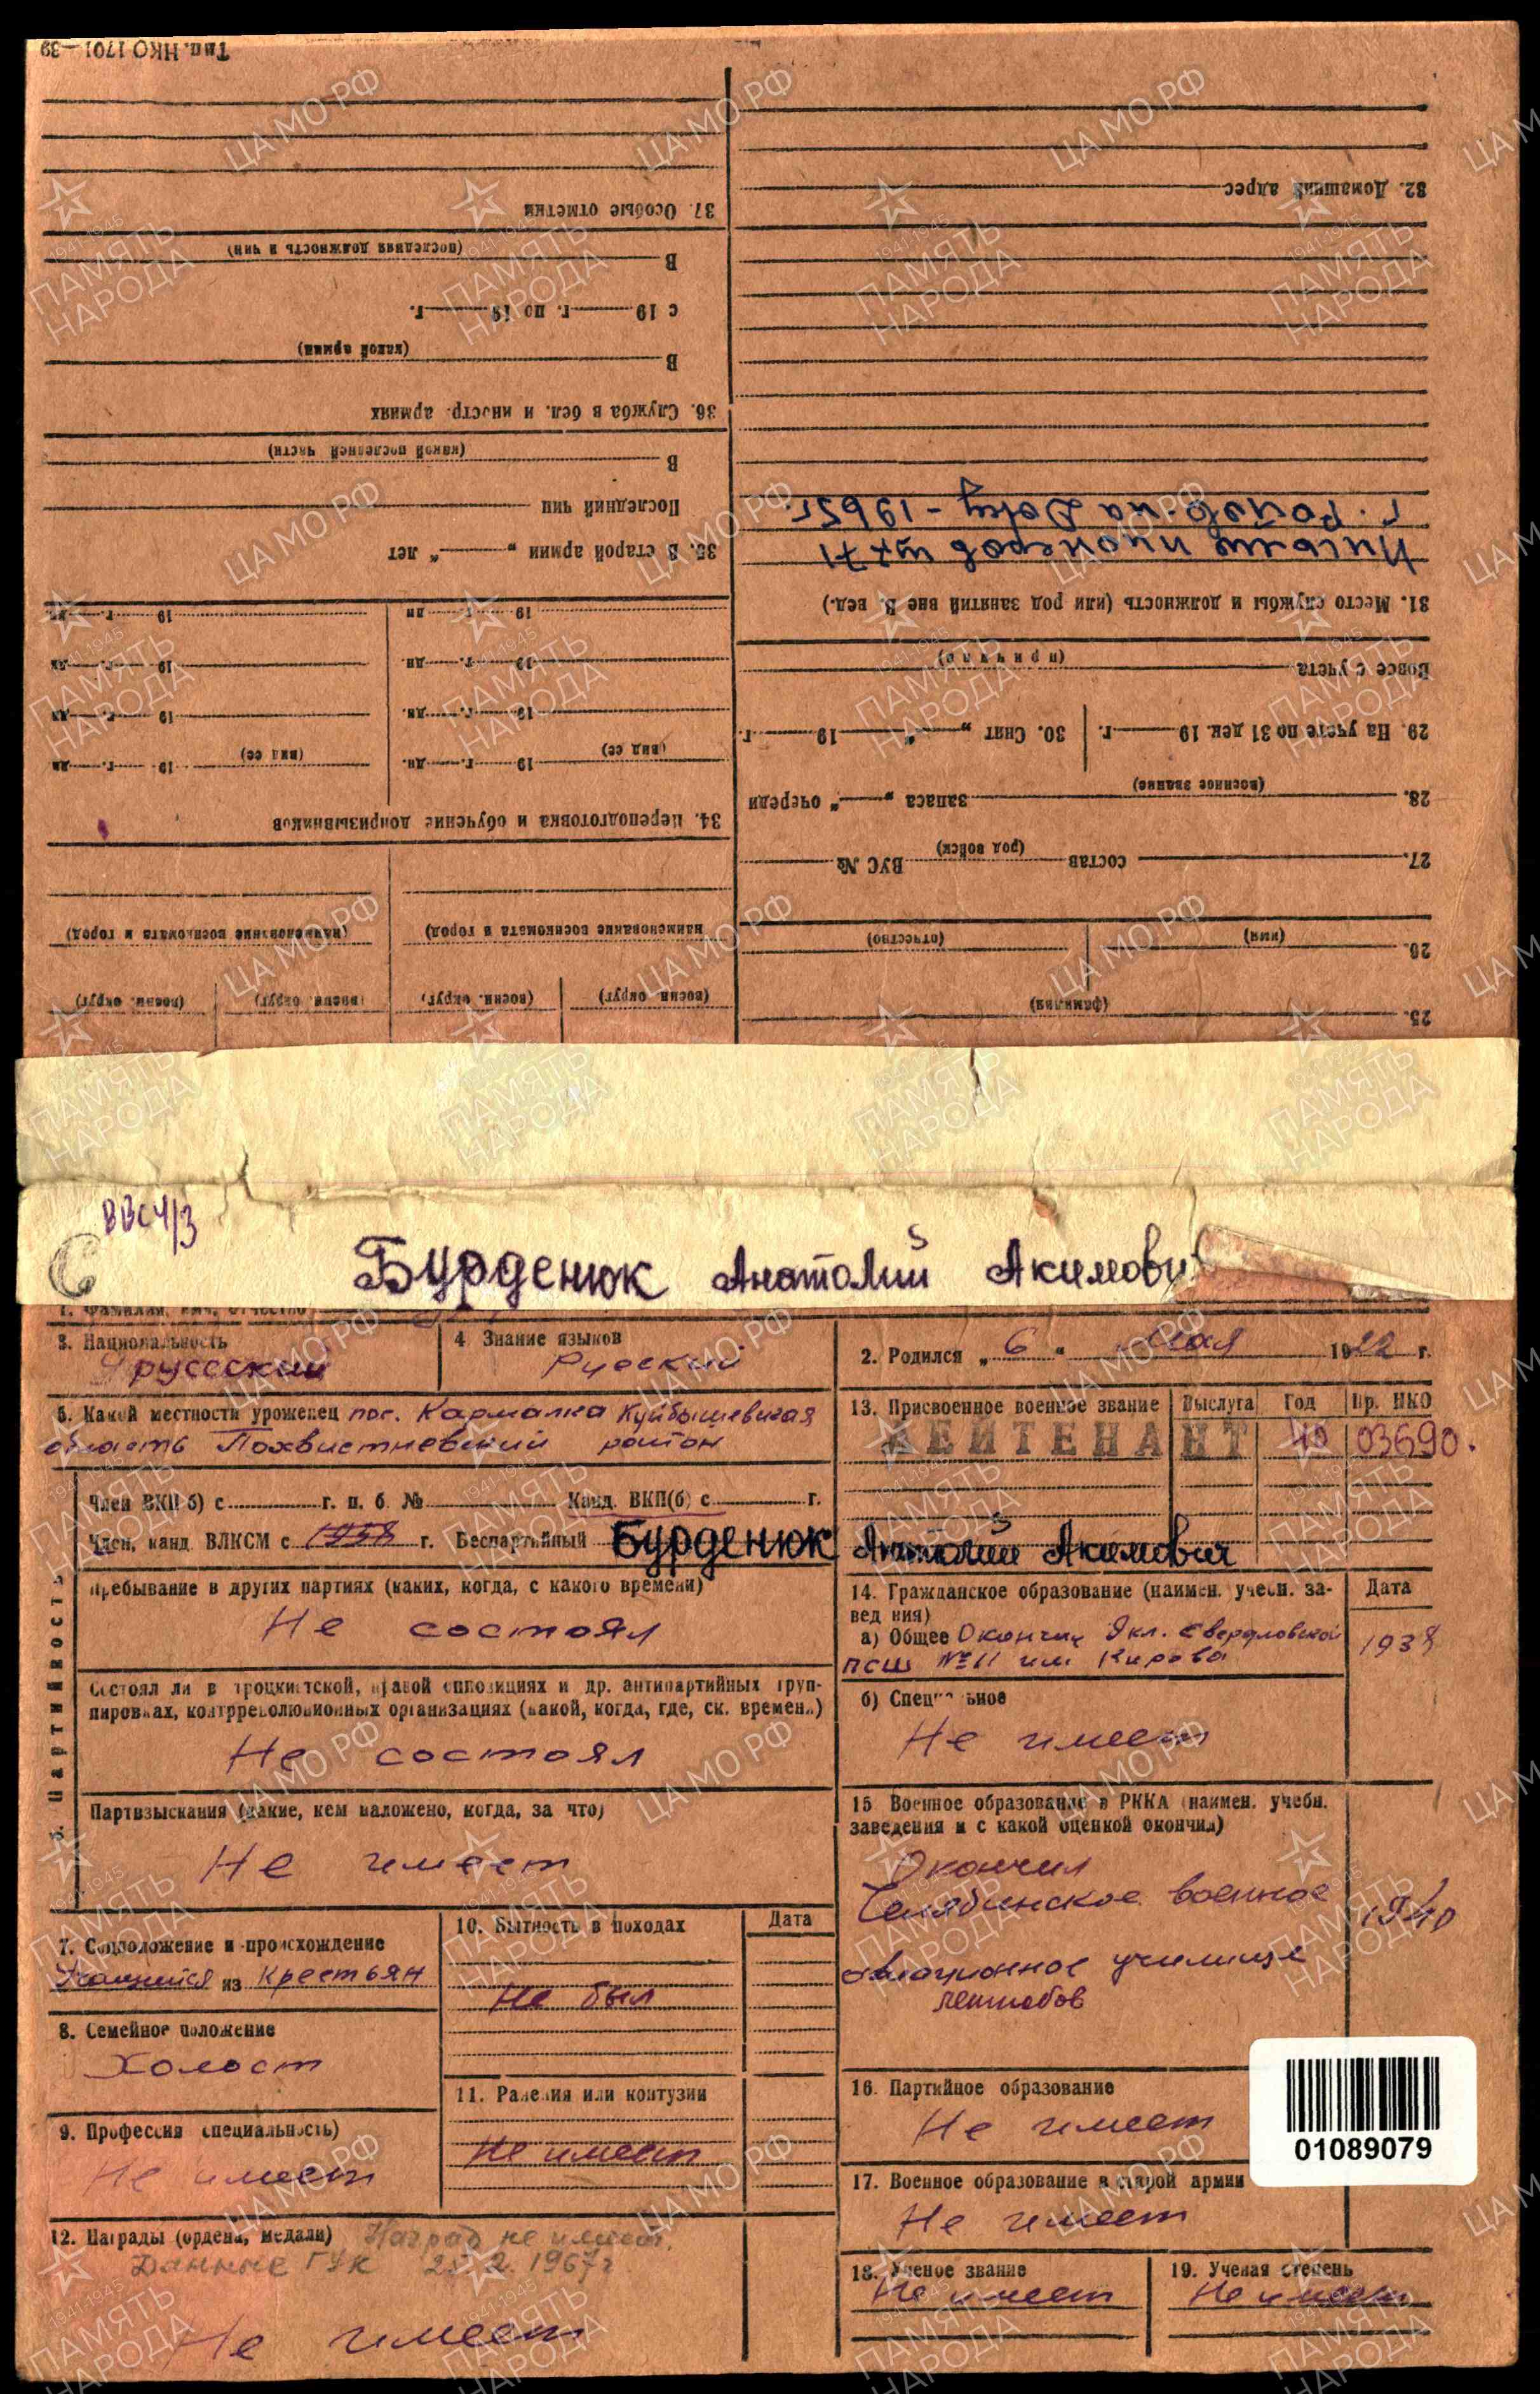 Тип. НКО 1701—39
32. Домашний адрес
г. Ростов-на Дону - 1965г.
Письмо пионеров шк 71
31. Место службы и должность (или род занятий вне В. вед.)
Вовсе с учета
(причина)
29. На учете по 31 дек. 19 г. 30. Снят „ “ 19 г.
28. запаса „ “ очереди
(военное звание)
27. состав ВУС №
(род войск)
26.
(имя) (отчество)
25.
(фамилия)
37. Особые отметки
В
(последняя должность и чин)
с 19 г. по 19 г.
В
(какой армии)
36. Служба в бел. и иностр. армиях
В
(какой последней части)
Последний чин
35. В старой армии „ “ лет
19 г. дн 19 г. дн
19 г. дн. 19 г. дн
19 г. дн. 19 г. дн
(вид сс) 19 г. дн. (вид сс) 19 г. дн
34. Переподготовка и обучение допризывников
наименование военкомата и город) (наименование военкомата и город)
(военн. округ) (военн. округ) (военн. округ) (военн. округ)
ВВС 4/3
Бурденюк Анатолий Акимович
1. Фамилия, имя, отчество
3. Национальность
русский
4 Знание языков
Русский
2. Родился „ 6 “ Мая 1922 г.
5. Какой местности уроженец пос. Кармалка Куйбышевская
область Похвистневский район
13. Присвоенное военное звание Выслуга Год Пр. НКО
ЛЕЙТЕНАНТ 40 03690.
Член ВКП(б) с г. п. б. № Канд. ВКП(б) с г.
Член, канд. ВЛКСМ с 1938 г. Беспартийный
Бурденюк Анатолий Акимович
6. Партийность
Пребывание в других партиях (каких, когда, с какого времени)
Не состоял
Состоял ли в троцкистской, правой оппозициях и др. антипартийных груп-
пировках, контрреволюционных организациях (какой, когда, где, ск. времени)
Не состоял
Партвзыскания (какие, кем наложено, когда, за что)
Не имеет
14. Гражданское образование (наимен. учебн. за-
ведения) Дата
а) Общее Окончил 9 кл. Свердловской
псш № 11 им Кирова 1938
б) Специальное
Не имеет
15 Военное образование в РККА (наимен. учебн.
заведения и с какой оценкой окончил)
Окончил
Челябинское военное 1940
авиационное училище
летнабов
7. Соцположение и происхождение
Учащийся из крестьян
8. Семейное положение
Холост
9. Профессия (специальность)
Не имеет
10. Бытность в походах Дата
Не был
11. Ранения или контузии
Не имеет
12. Награды (ордена, медали) Наград не имеет.
Данные ГУК 25.2.1967г
Не имеет
16. Партийное образование
Не имеет
17. Военное образование в старой армии
Не имеет
18. Ученое звание
Не имеет
19. Ученая степень
Не имеет
01089079
ЦА МО РФ
1941-1945
ПАМЯТЬ
НАРОДА